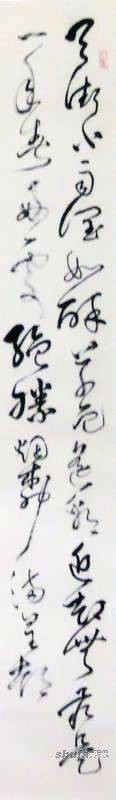 天街小雨润如酥草色遥看近却无最是
一年春好处绝胜烟柳满皇都